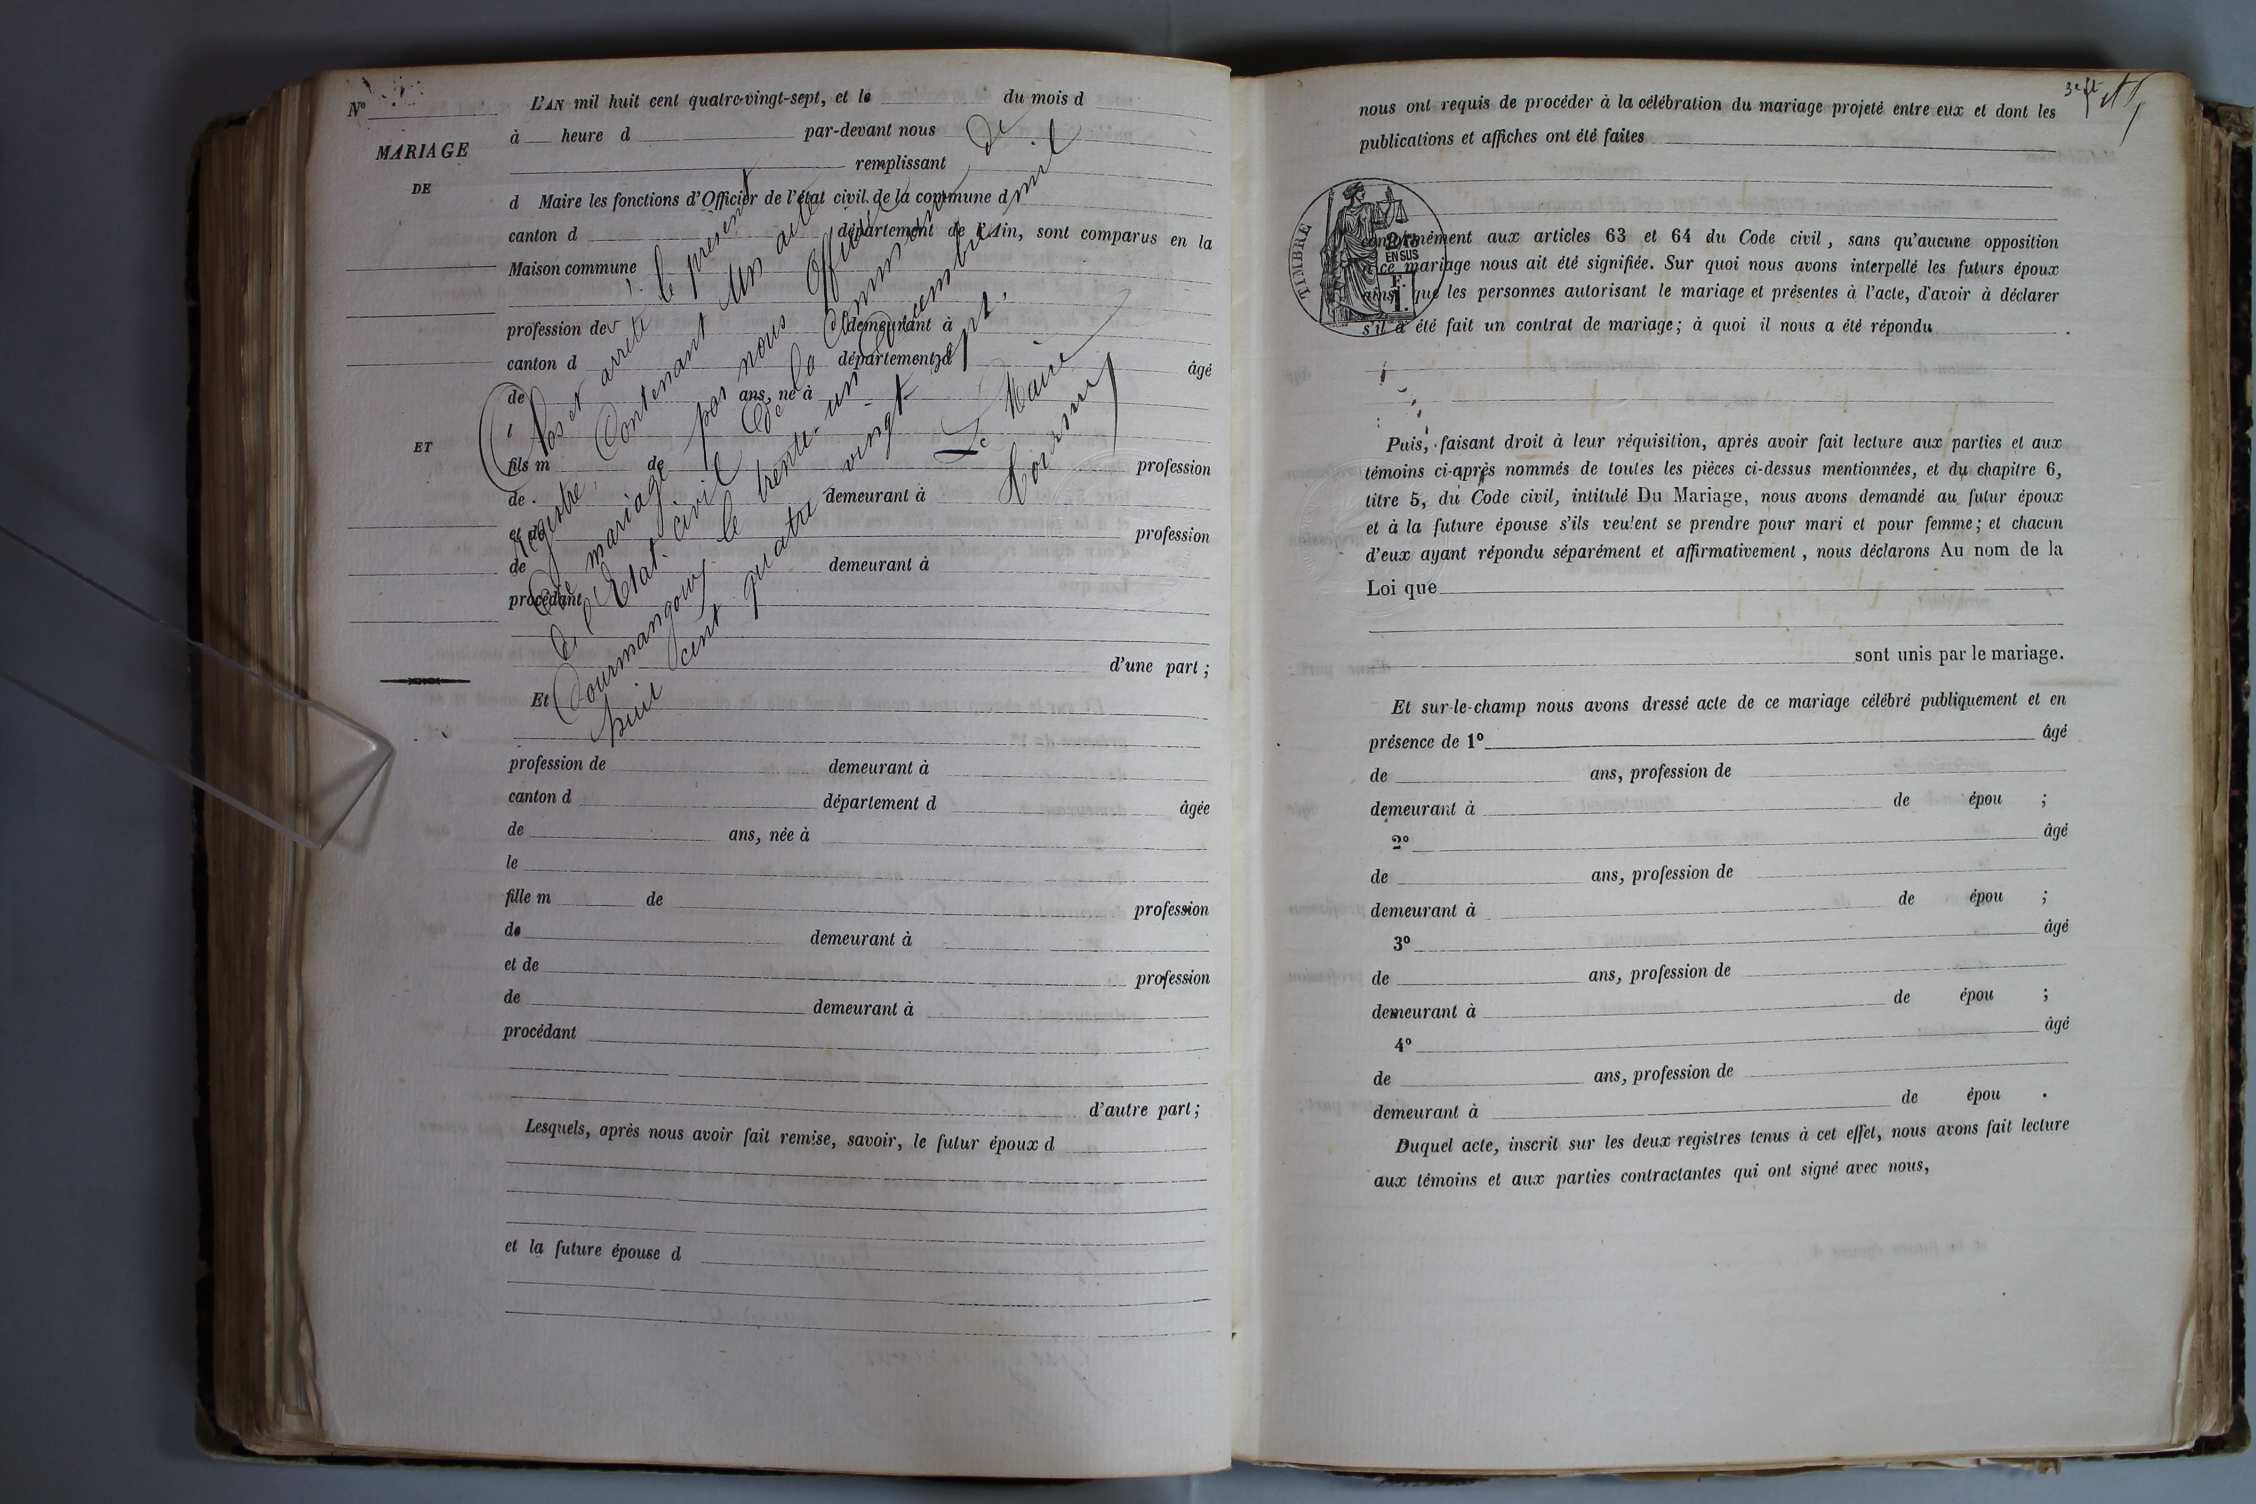 No
MARIAGE
DE
ET
L'AN mil huit cent quatre-vingt-sept, et le du mois d
à heure d par-devant nous
remplissant
d Maire les fonctions d'Officier de l'état civil de la commune d
canton d département de l'Ain, sont comparus en la
Maison commune
profession de demeurant à
canton d département d âgé
de ans, né à
l
fils m de profession
de demeurant à
et de profession
de demeurant à
procédant
d'une part ;
Clos et arrêté le présent
registre, Contenant Un acte
de mariage par nous Officier de
de l'Etat-civil de la Commune de
Journangoux le trente-un Décembre mil
huit cent quatre vingt sept.
Le Maire
Et
profession de demeurant à
canton d département d âgée
de ans, née à
le
fille m de profession
de demeurant à
et de profession
de demeurant à
procédant
d'autre part ;
Lesquels, après nous avoir fait remise, savoir, le futur époux d
et la future épouse d
3e ft
nous ont requis de procéder à la célébration du mariage projeté entre eux et dont les
publications et affiches ont été faites
TIMBRE
2/10 EN SUS
conformément aux articles 63 et 64 du Code civil, sans qu'aucune opposition
à ce mariage nous ait été signifiée. Sur quoi nous avons interpellé les futurs époux
ainsi que les personnes autorisant le mariage et présentes à l'acte, d'avoir à déclarer
s'il a été fait un contrat de mariage ; à quoi il nous a été répondu
Puis, faisant droit à leur réquisition, après avoir fait lecture aux parties et aux
témoins ci-après nommés de toutes les pièces ci-dessus mentionnées, et du chapitre 6,
titre 5, du Code civil, intitulé Du Mariage, nous avons demandé au futur époux
et à la future épouse s'ils veulent se prendre pour mari et pour femme ; et chacun
d'eux ayant répondu séparément et affirmativement, nous déclarons Au nom de la
Loi que
sont unis par le mariage.
Et sur-le-champ nous avons dressé acte de ce mariage célébré publiquement et en
présence de 1º âgé
de ans, profession de
demeurant à de épou ;
2º âgé
de ans, profession de
demeurant à de épou ;
3º âgé
de ans, profession de
demeurant à de épou ;
4º âgé
de ans, profession de
demeurant à de épou .
Duquel acte, inscrit sur les deux registres tenus à cet effet, nous avons fait lecture
aux témoins et aux parties contractantes qui ont signé avec nous,